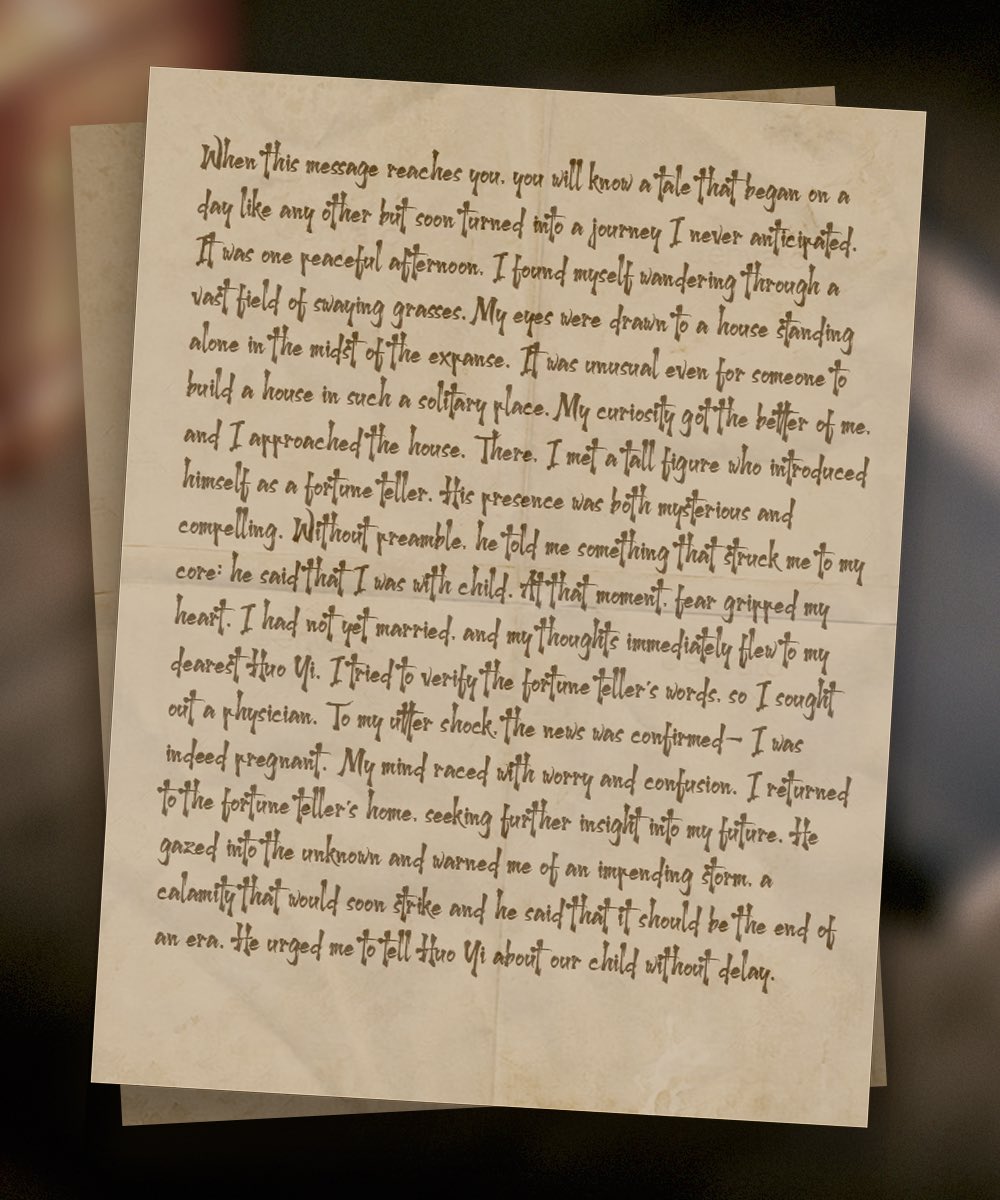 When this message reaches you, you will know a tale that began on a
day like any other but soon turned into a journey I never anticipated.
It was one peaceful afternoon, I found myself wandering through a
vast field of swaying grasses. My eyes were drawn to a house standing
alone in the midst of the expanse. It was unusual even for someone to
build a house in such a solitary place. My curiosity got the better of me,
and I approached the house. There, I met a tall figure who introduced
himself as a fortune teller. His presence was both mysterious and
compelling. Without preamble, he told me something that struck me to my
core: he said that I was with child. At that moment, fear gripped my
heart. I had not yet married, and my thoughts immediately flew to my
dearest Huo Yi. I tried to verify the fortune teller's words, so I sought
out a physician. To my utter shock, the news was confirmed— I was
indeed pregnant. My mind raced with worry and confusion. I returned
to the fortune teller's home, seeking further insight into my future. He
gazed into the unknown and warned me of an impending storm, a
calamity that would soon strike and he said that it should be the end of
an era. He urged me to tell Huo Yi about our child without delay.